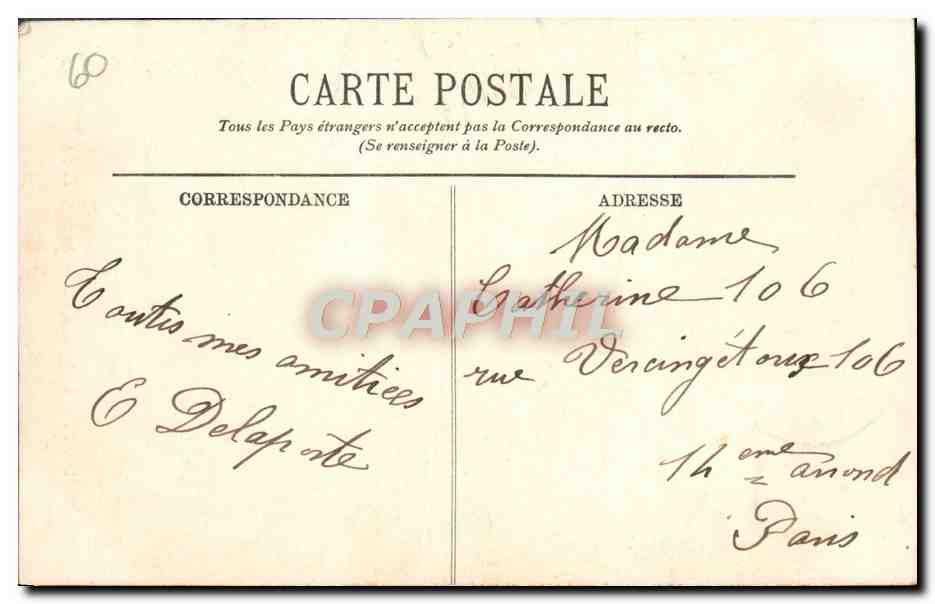 60
CARTE POSTALE
Tous les Pays étrangers n'acceptent pas la Correspondance au recto.
(Se renseigner à la Poste).
CORRESPONDANCE
Toutes mes amitiées
E Delaporte
ADRESSE
Madame
Catherine 106
rue Vercingétoux 106
14 eme arrond
Paris
CPAPHIL